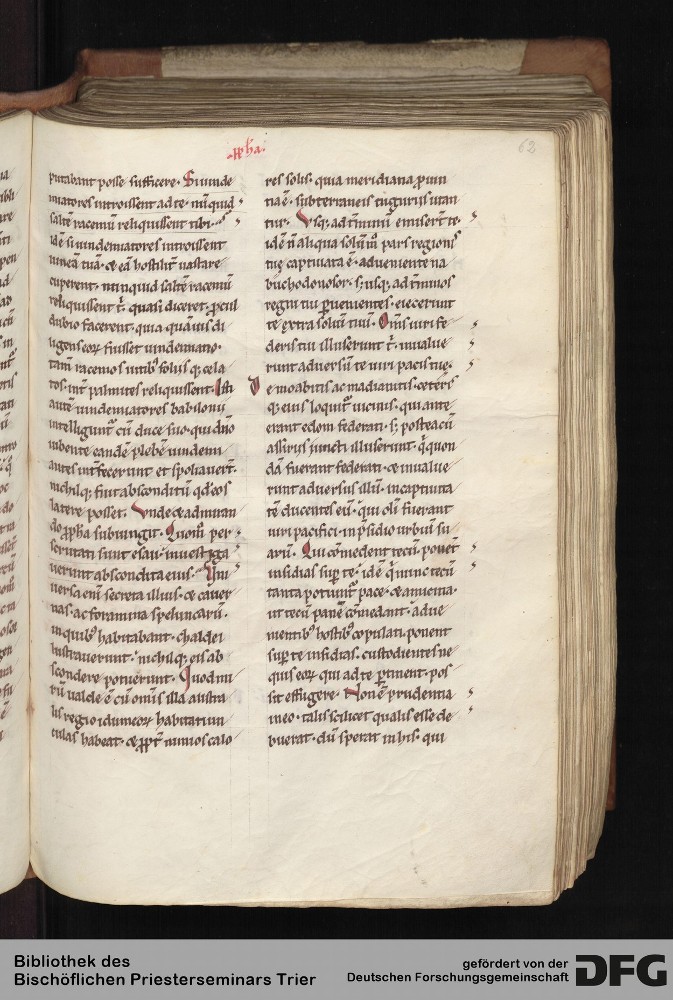 .ꝓph̄a.
62
putabant posse sufficere. Si uinde
miatores introissent ad te. nūquid
saltē racemū reliquissent tibi.
idē si uindemiatores introissent
uineā tuā. & eā hostilit̄ uastare
cuperent. nunquid saltē racemū
reliquissent t̄. quasi diceret. ꝓcul
dubio facerent. quia quāuis di
ligens eoꝝ fuisset uindemiatio.
tam̄ racemos uitibꝰ foliisq; cela
tos. int̄ palmites reliquissent. Isti
autē uindemiatores babilonii
intelligunt᷑ cū duce suo. qui dn̄o
iubente eandē plebē uindemi
antes int̄fecerunt et spoliauer̄t.
nichilq; fuit absconditū qd̓ eos
latere posset. Vnde & admiran
do ꝓph̄a subiungit. Quom̄ per
scrutati sunt esau. inuestiga
uerunt abscondita eius. Vni
uersa eni secreta illius. & cauer
nas. ac foramina speluncarū.
in quibꝰ habitabant. chaldei
lustrauerunt. nichilq; eis ab
scondere potuerunt. Quod mi
rū ualde ē cū omīs illa austra
lis regio idumeoꝝ habitatiun
culas habeat. & ꝓpt̄ nimios calo
res solis. quia meridiana ꝓuin
tia ē. subterraneis tuguriis utan
tur. Vsq; ad t̄minū emiser̄t te.
idē n̄ aliqua solūm̄ pars regionis
tuę captiuata ē. adueniente na
buchodonosor. s; usq; ad t̄minos
regni tui ꝑuenientes. eiecerunt
te extra solum tuū. Om̄s uiri fe
deris tui illuserunt t̄. inualue
runt aduersū te uiri pacis tuę.
De moabitis ac madianitis. ceteris
q; eius loquit᷑ uicinis. qui ante
erant edom federati. s; postea cū
assiriis iuncti illuserunt. q̇ quon
dā fuerant federati. & inualue
runt aduersus illū. in captiuita
tē ducentes eū. qui oli fuerant
uiri pacifici. in p̄sidio urbiū su
arū. Qui comedent tecū. ponēt
insidias suꝑ te. idē q̇ nunc tecū
tanta potiunt᷑ pace. & amicitia.
ut tecū panē comedant. adue
nientibꝰ hostibꝰ copulati. ponent
suꝑ te insidias. custodientes ne
quis eoꝝ qui ad te ꝑtinent. pos
sit effugere. Non ē prudentia
in eo. talis scilicet qualis esse de
buerat. dū sperat in his. qui
Bibliothek des
Bischöflichen Priesterseminars Trier
gefördert von der
Deutschen Forschungsgemeinschaft
DFG